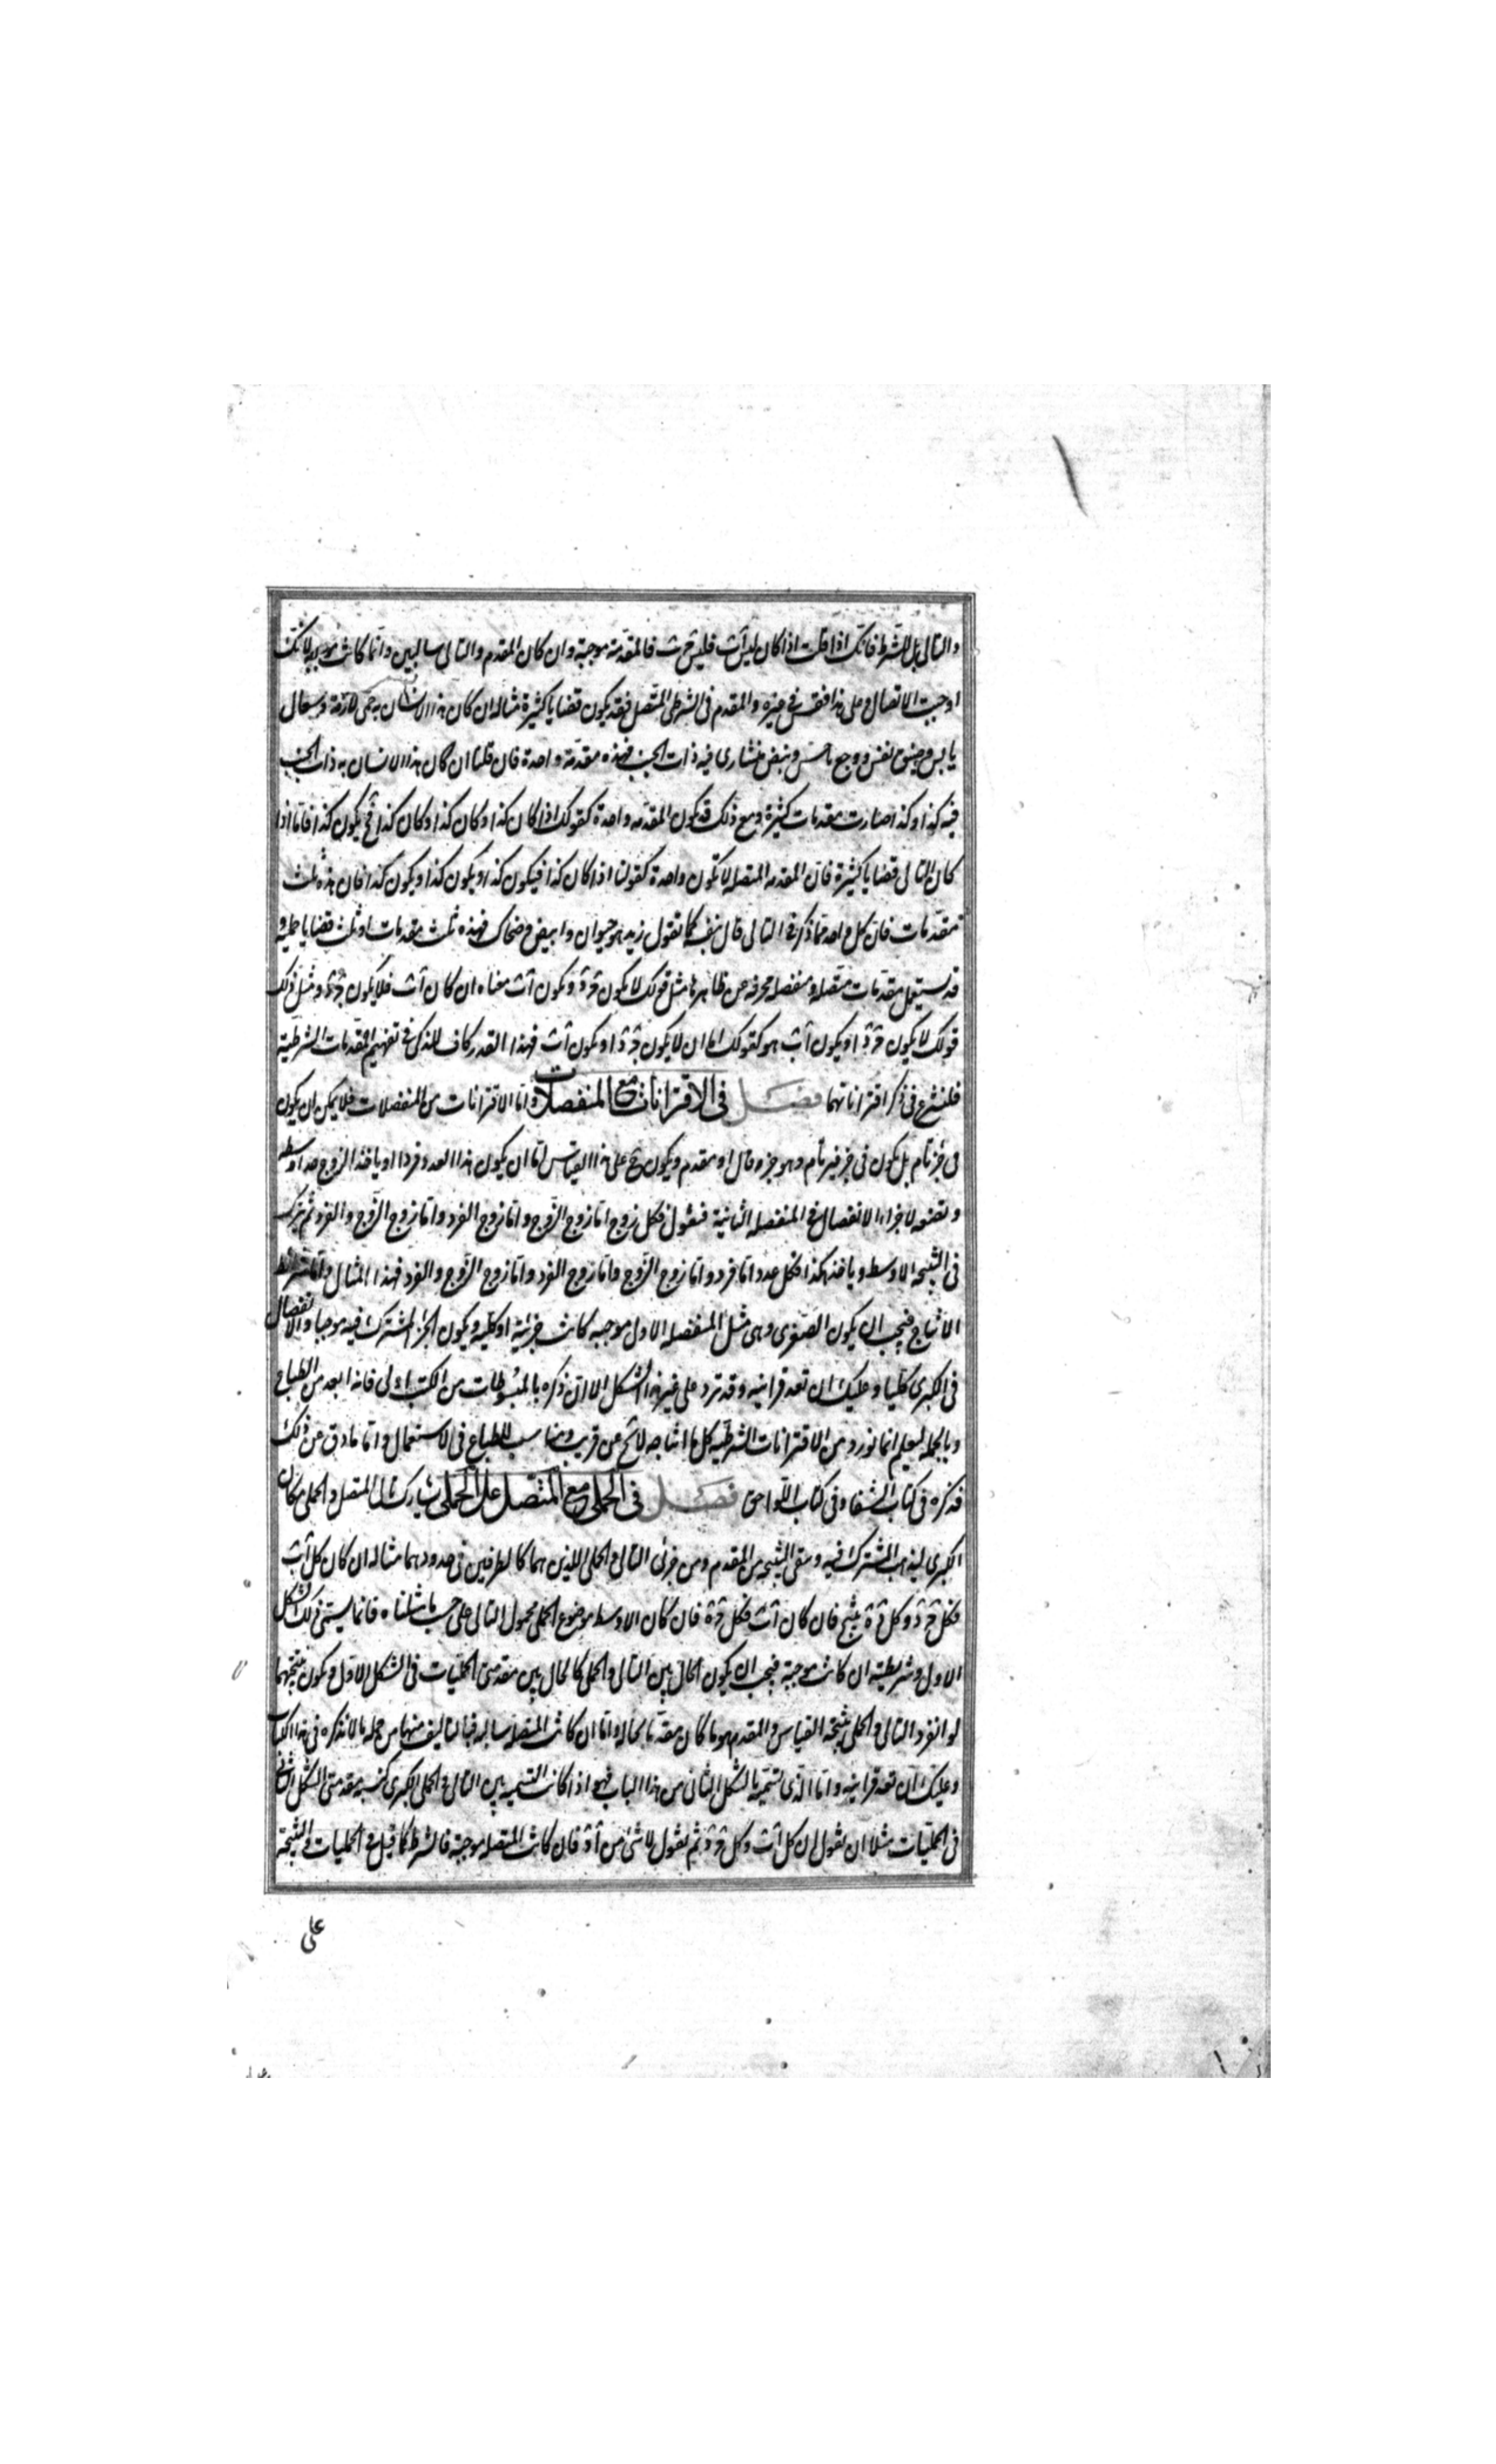 والتالى بل للشرط فانك اذا قلت اذا كان ليس آب فليس ج ب فالمقدمة موجبة وان كان المقدم والتالى سالبين وانما كانت موجبة لانك
اوجبت الاتصال وعلى هذا فقس فى غيره والمقدم فى الشرطى المتصل فقد يكون قضايا كثيرة مثاله ان كان هذا الانسان به حمى لازمة وسعال
يابس وضيق نفس ووجع ناخس ونبض منشارى فبه ذات الجنب فهذه مقدمة واحدة فان قلنا ان كان هذا الانسان به ذات الجنب
فبه كذا وكذا صارت مقدمات كثيرة ومع ذلك قد تكون المقدمه واحدة كقولك اذا كان كذا وكان كذا وكان كذا فح يكون كذا فاما اذا
كان التالى قضايا كثيرة فان المقدمه المتصله لا تكون واحدة كقولنا اذا كان كذا فيكون كذا ويكون كذا ويكون كذا فان هذه ثلث
مقدمات فان كل واحد مما ذكر فى التالى قال بنفسه كما تقول زيد هو حيوان وابيض وضحاك فهذه ثلث مقدمات او ثلث قضايا حملية و
قد يستعمل مقدمات متصله ومنفصله محرفه عن ظاهرها مثل قولك لا يكون ج د ويكون آب معناه ان كان آب فلا يكون ج د ومثل ذلك
قولك لا يكون ج د او يكون آب هو كقولك اما ان لا يكون ج د او يكون آب فهذا القدر كاف للذكى فى تفهيم المقدمات الشرطية
فلنشرع فى ذكر اقتراناتها فصل فى الاقترانات مع المنفصلات واما الاقترانات من المنفصلات فلا يمكن ان يكون
فى جزء تام بل يكون فى جزء غير تام وهو جزء تال او مقدم ويكون ح على هذا القياس اما ان يكون هذا العدد فردا او يأخذ الزوج حدا اوسط
وتضعه لاجزاء الانفصال فى المنفصله الثانية فنقول فكل زوج اما زوج الزوج واما زوج الفرد واما زوج الزوج والفرد ثم يترك
فى النتيجه الاوسط ويأخذ هكذا فكل عدد اما فرد واما زوج الزوج واما زوج الفرد واما زوج الزوج والفرد فهذا المثال واما شرائط
الانتاج فيجب ان يكون الصغرى وهى مثل المنفصله الاول موجبه كانت جزئية او كلية ويكون الجزء المشترك فيه موجبا والانفصال
فى الكبرى كليا وعليك ان تعد قرائنه وقد ترد على غير هذا الشكل الا ان ذكره بالمبسوطات من الكتب اولى فانه ابعد من الطباع
وبالجمله ليعلم انما نورد من الاقترانات الشرطيه كل ما انتاجه لائح عن قريب ومناسب للطباع فى الاستعمال واما ما دق عن ذلك
فقد ذكره فى كتاب الشفا وفى كتاب اللواحق فصل فى الحملى مع المتصل على الحملى يشارك تالى المتصل والحملى مكان
الكبرى ليذهب المشترك فيه ويبقى النتيجه من المقدم ومن جزئى التالى والحملى اللذين هما كالطرفين فى حدودهما مثاله ان كان كل آب
فكل ج د وكل د ه ينتج فان كان آب فكل ج ه فان كان الاوسط موضوع الحملى محمول التالى على حسب ما مثلناه فانما يسمى ذلك الشكل
الاول وشريطته ان كانت موجبة فيجب ان يكون الحال بين التالى والحملى كالحال بين مقدمتى الحمليات فى الشكل الاول ويكون نتيجتهما
لو انفرد التالى والحملى نتيجة القياس والمقدم هو ما كان مقدما بحاله واما ان كانت المتصلة سالبه فبالتاليف منها من جمله ما لا نذكره فى هذا الكتاب
وعليك ان تعد قرائنه واما الذى نسميه بالشكل الثانى من هذا الباب فهو اذا كانت النسبه بين التالى والحملى الكبرى كنسبه مقدمتى الشكل الثانى
فى الحمليات مثلا ان نقول ان كل آب وكل ج د ثم نقول لا شئ من آ د فان كانت المتصله موجبة فالشرط كما قيل فى الحمليات والنتيجة
على